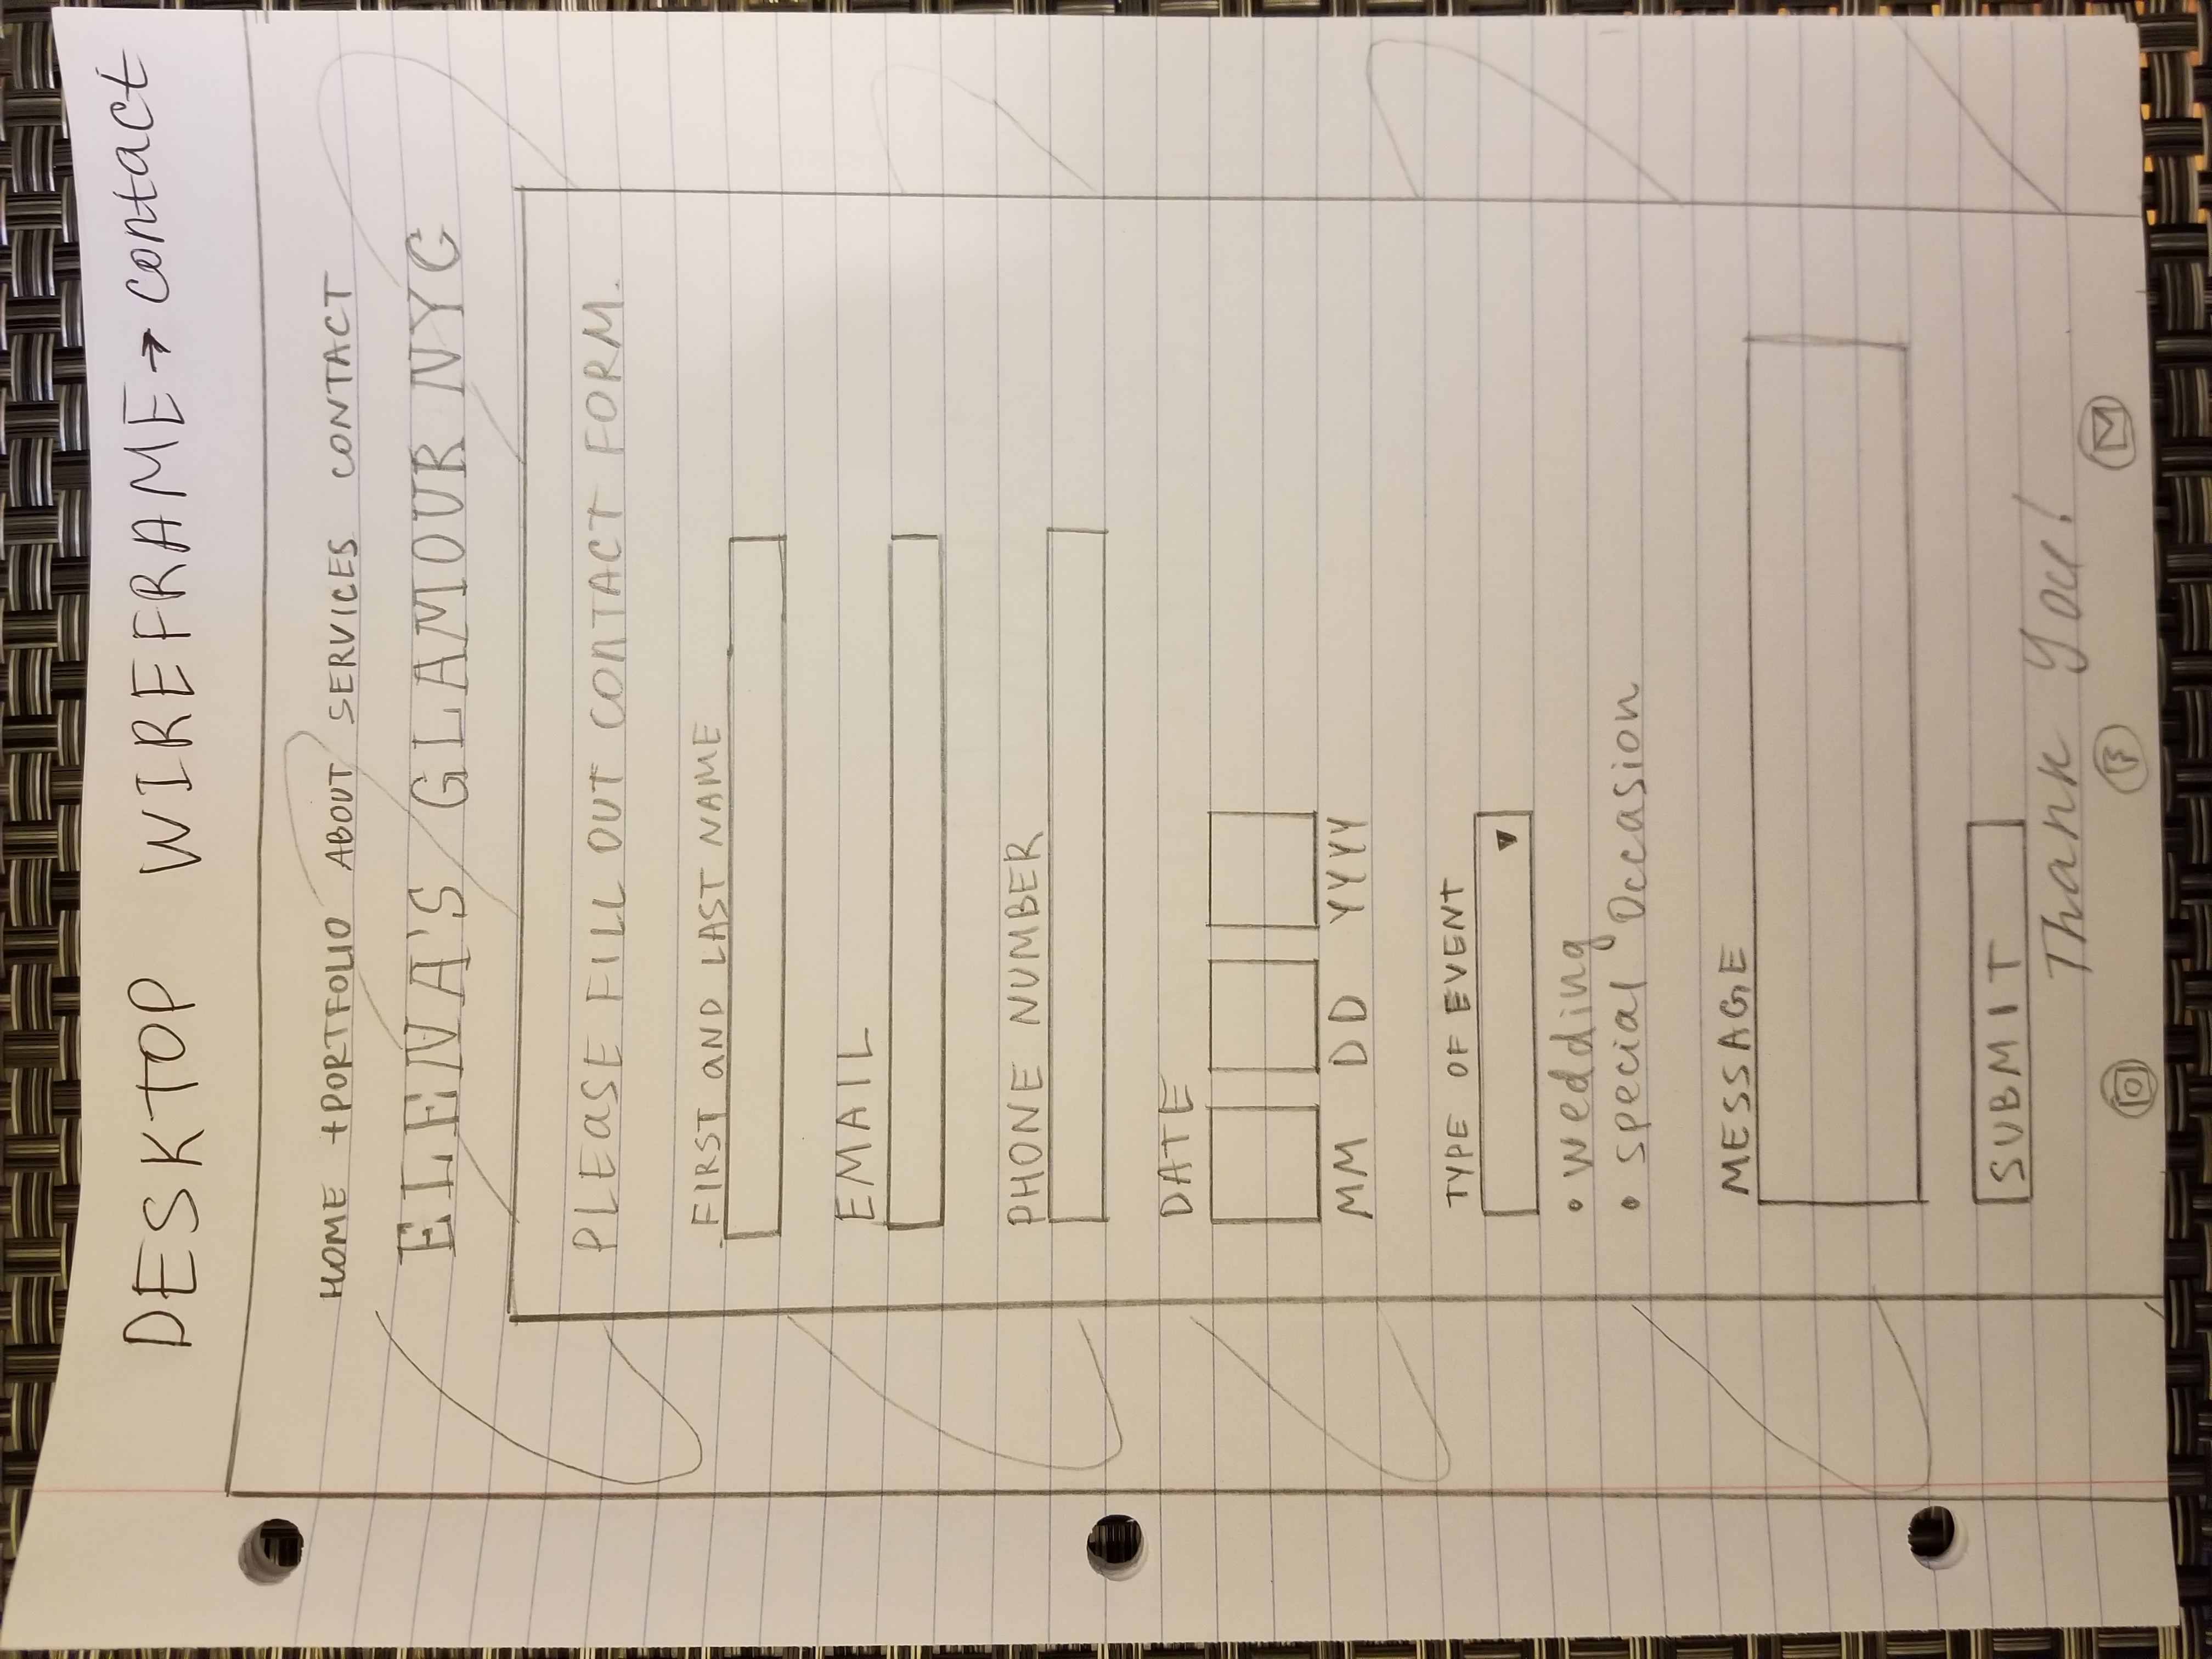 DESKTOP WIREFRAME → contact
HOME +PORTFOLIO ABOUT SERVICES CONTACT
ELENA'S GLAMOUR NYC
PLEaSE FILL OUT CONTACT FORM.
FIRST aND LAST NAME
EMAIL
PHONE NUMBER
DATE
MM DD YYYY
TYPE OF EVENT
• wedding
• special Occasion
MESSAGE
SUBMIT
Thank You!